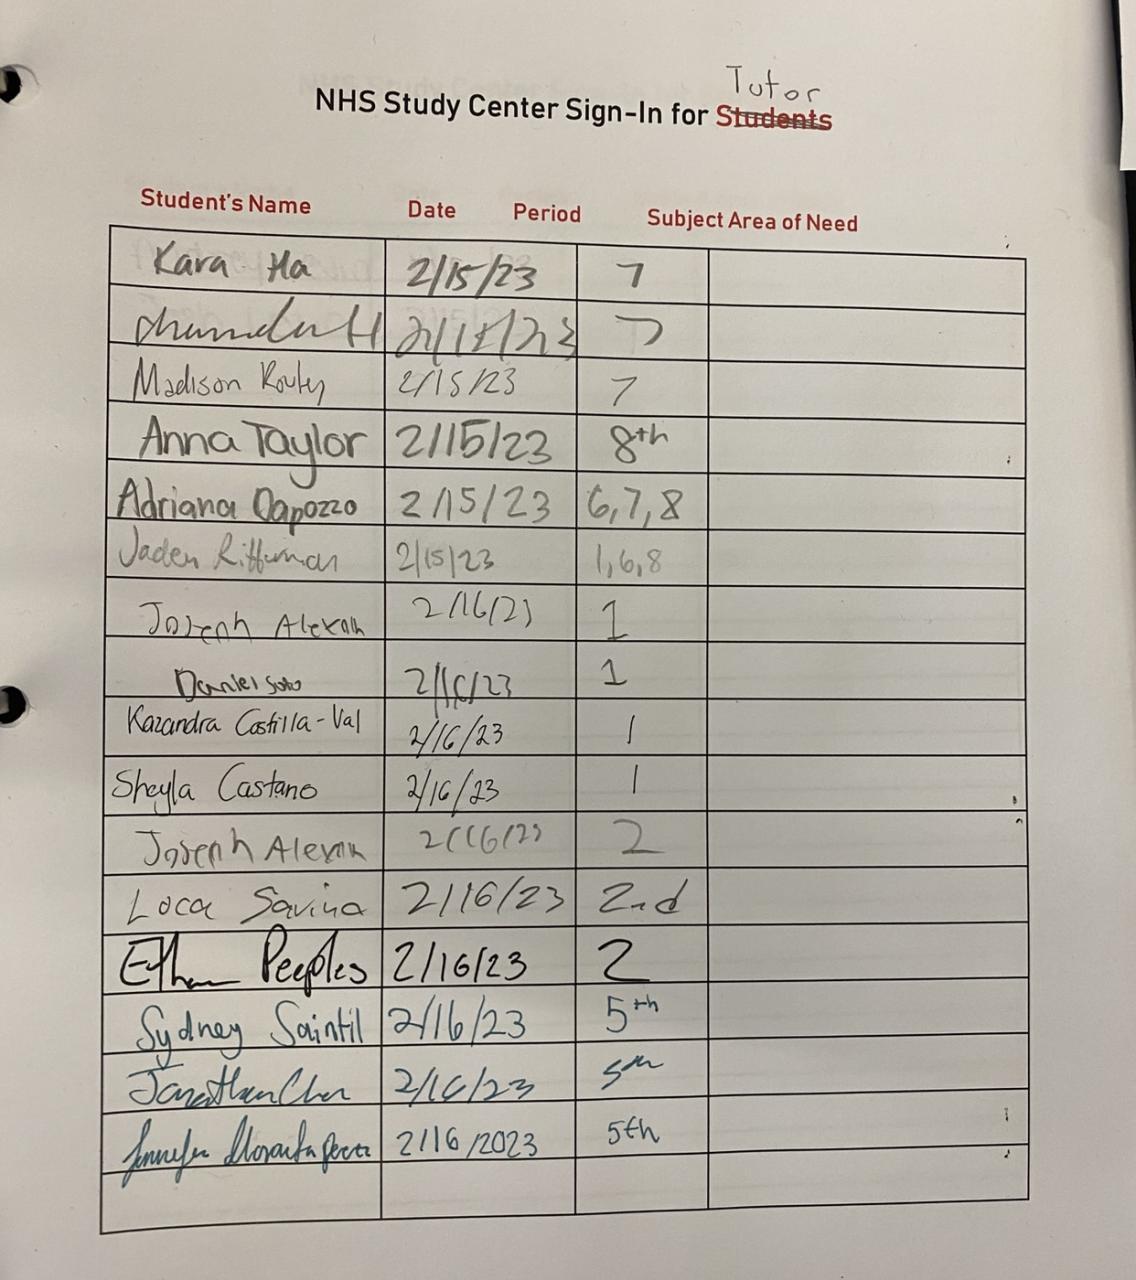 Tutor
NHS Study Center Sign-In for Students
Student's Name Date Period Subject Area of Need
Kara Ha 2/15/23 7
H 2/15/23 7
Madison 2/15/23 7
Anna Taylor 2/15/23 8th
Adriana Dapozzo 2/15/23 6,7,8
Jaden 2/15/23 1,6,8
Joseph 2/16/23 1
Daniel Soto 2/16/23 1
Kazandra Castilla-Val 2/16/23 1
Sheyla Castano 2/16/23 1
Joseph 2/16/23 2
Luca Savina 2/16/23 2nd
Ethan Peeples 2/16/23 2
Sydney Saintil 2/16/23 5th
Jonathan Chen 2/16/23 5th
Jennifer 2/16/2023 5th